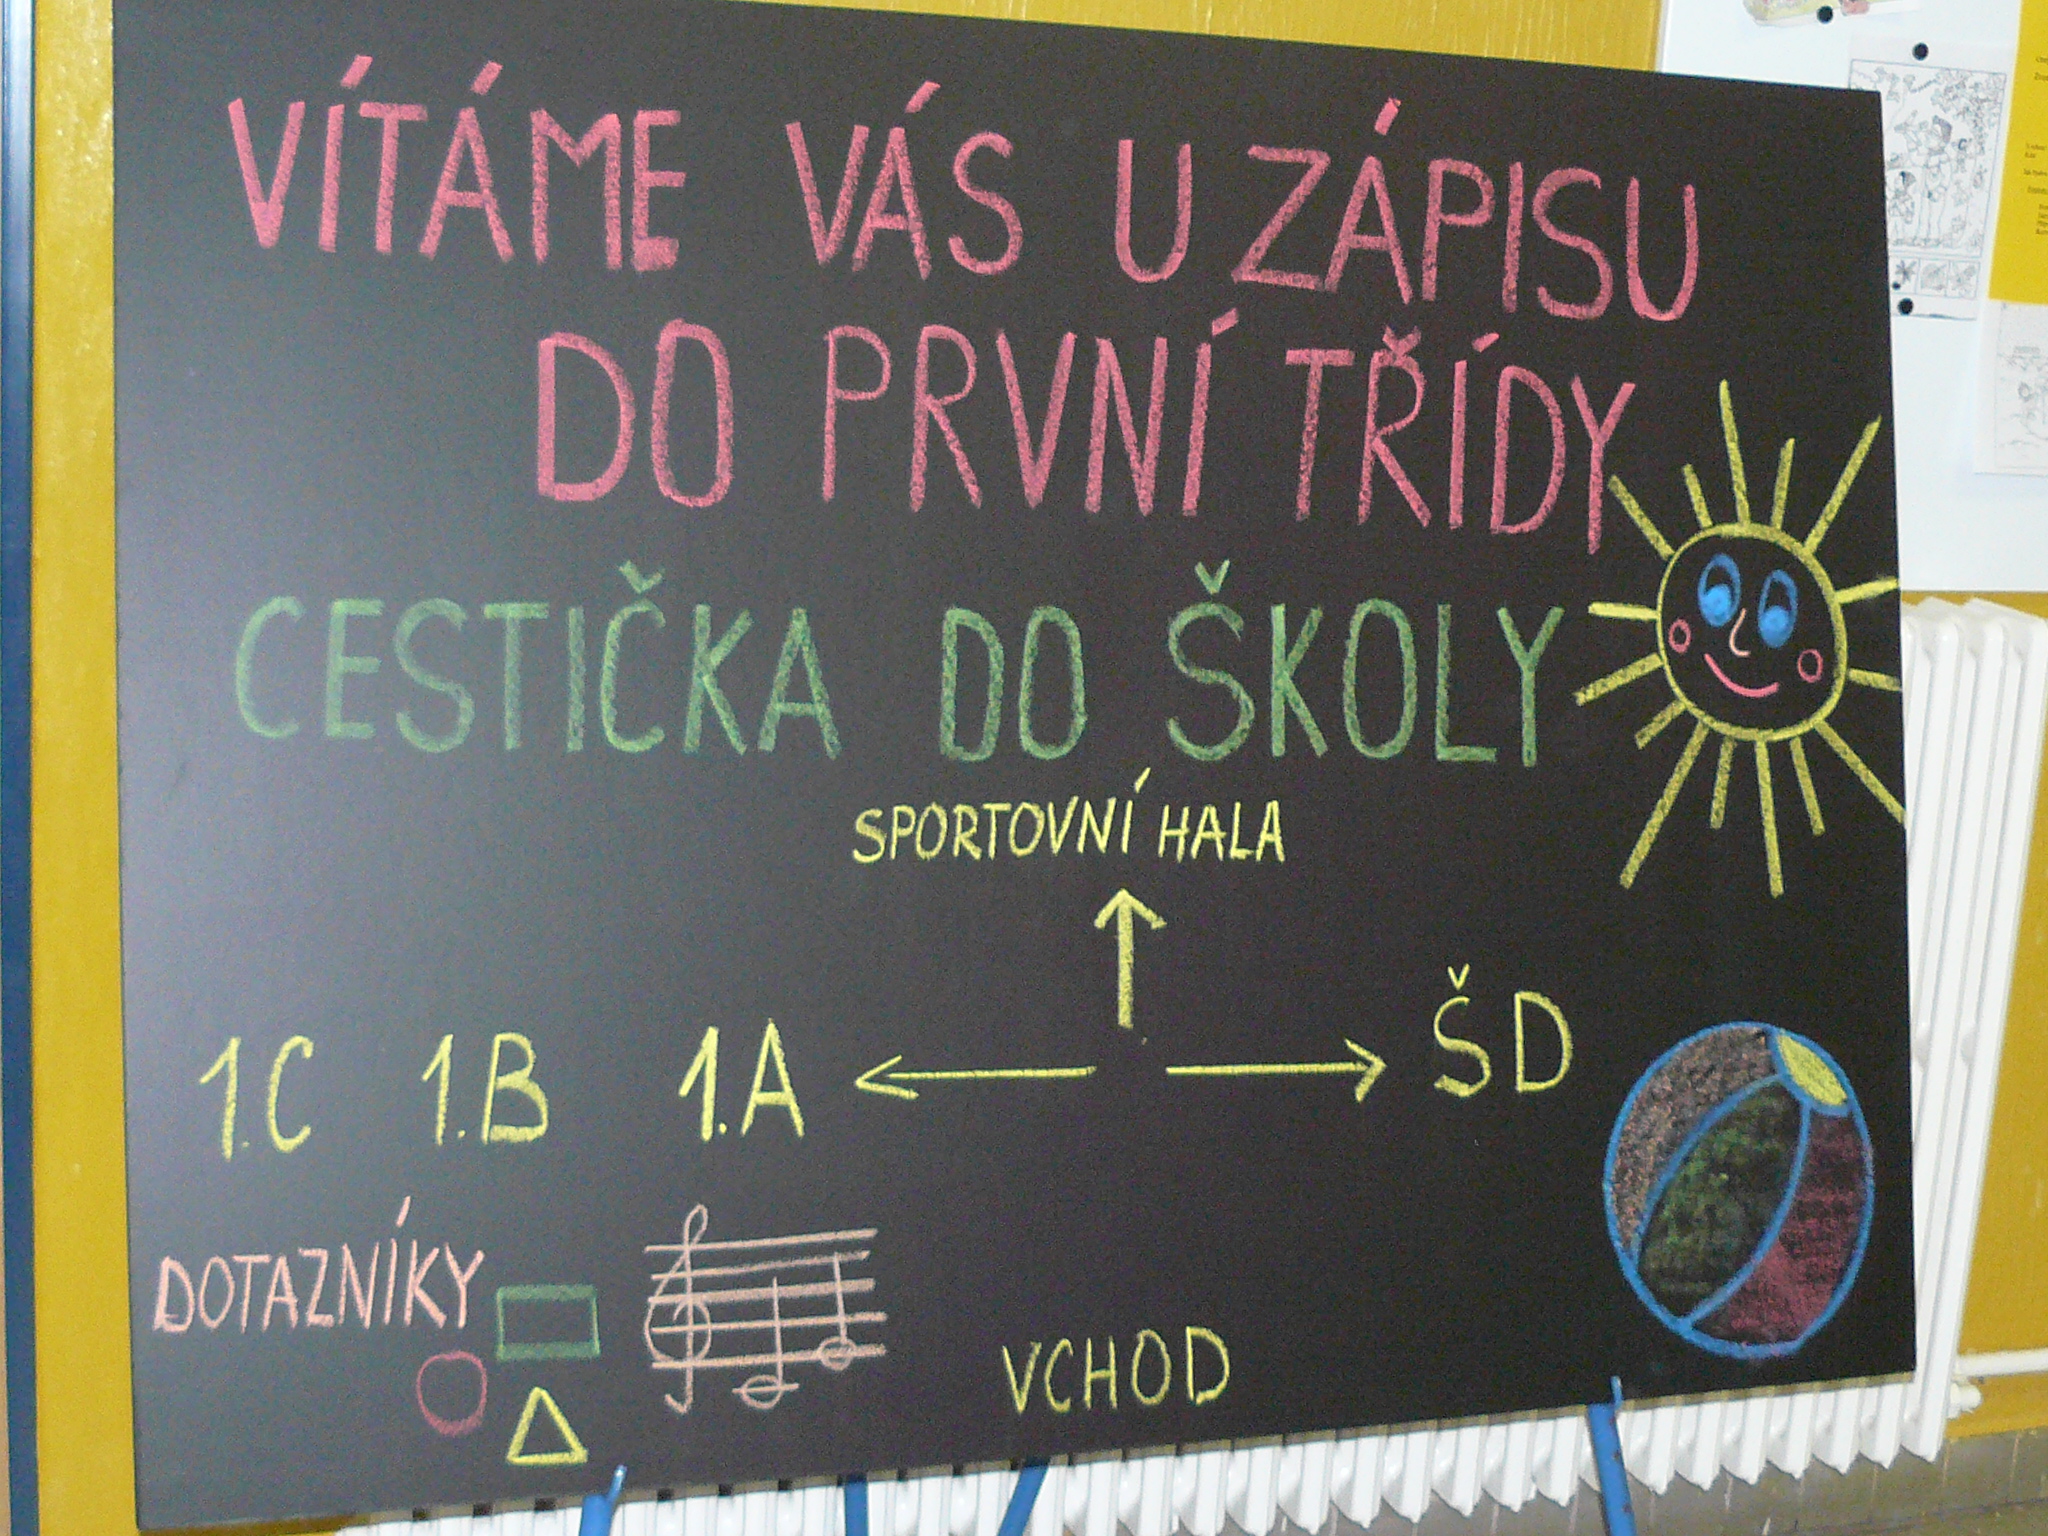 VÍTÁME VÁS U ZÁPISU
DO PRVNÍ TŘÍDY
CESTIČKA DO ŠKOLY
SPORTOVNÍ HALA
1.C 1.B 1.A ŠD
DOTAZNÍKY
VCHOD